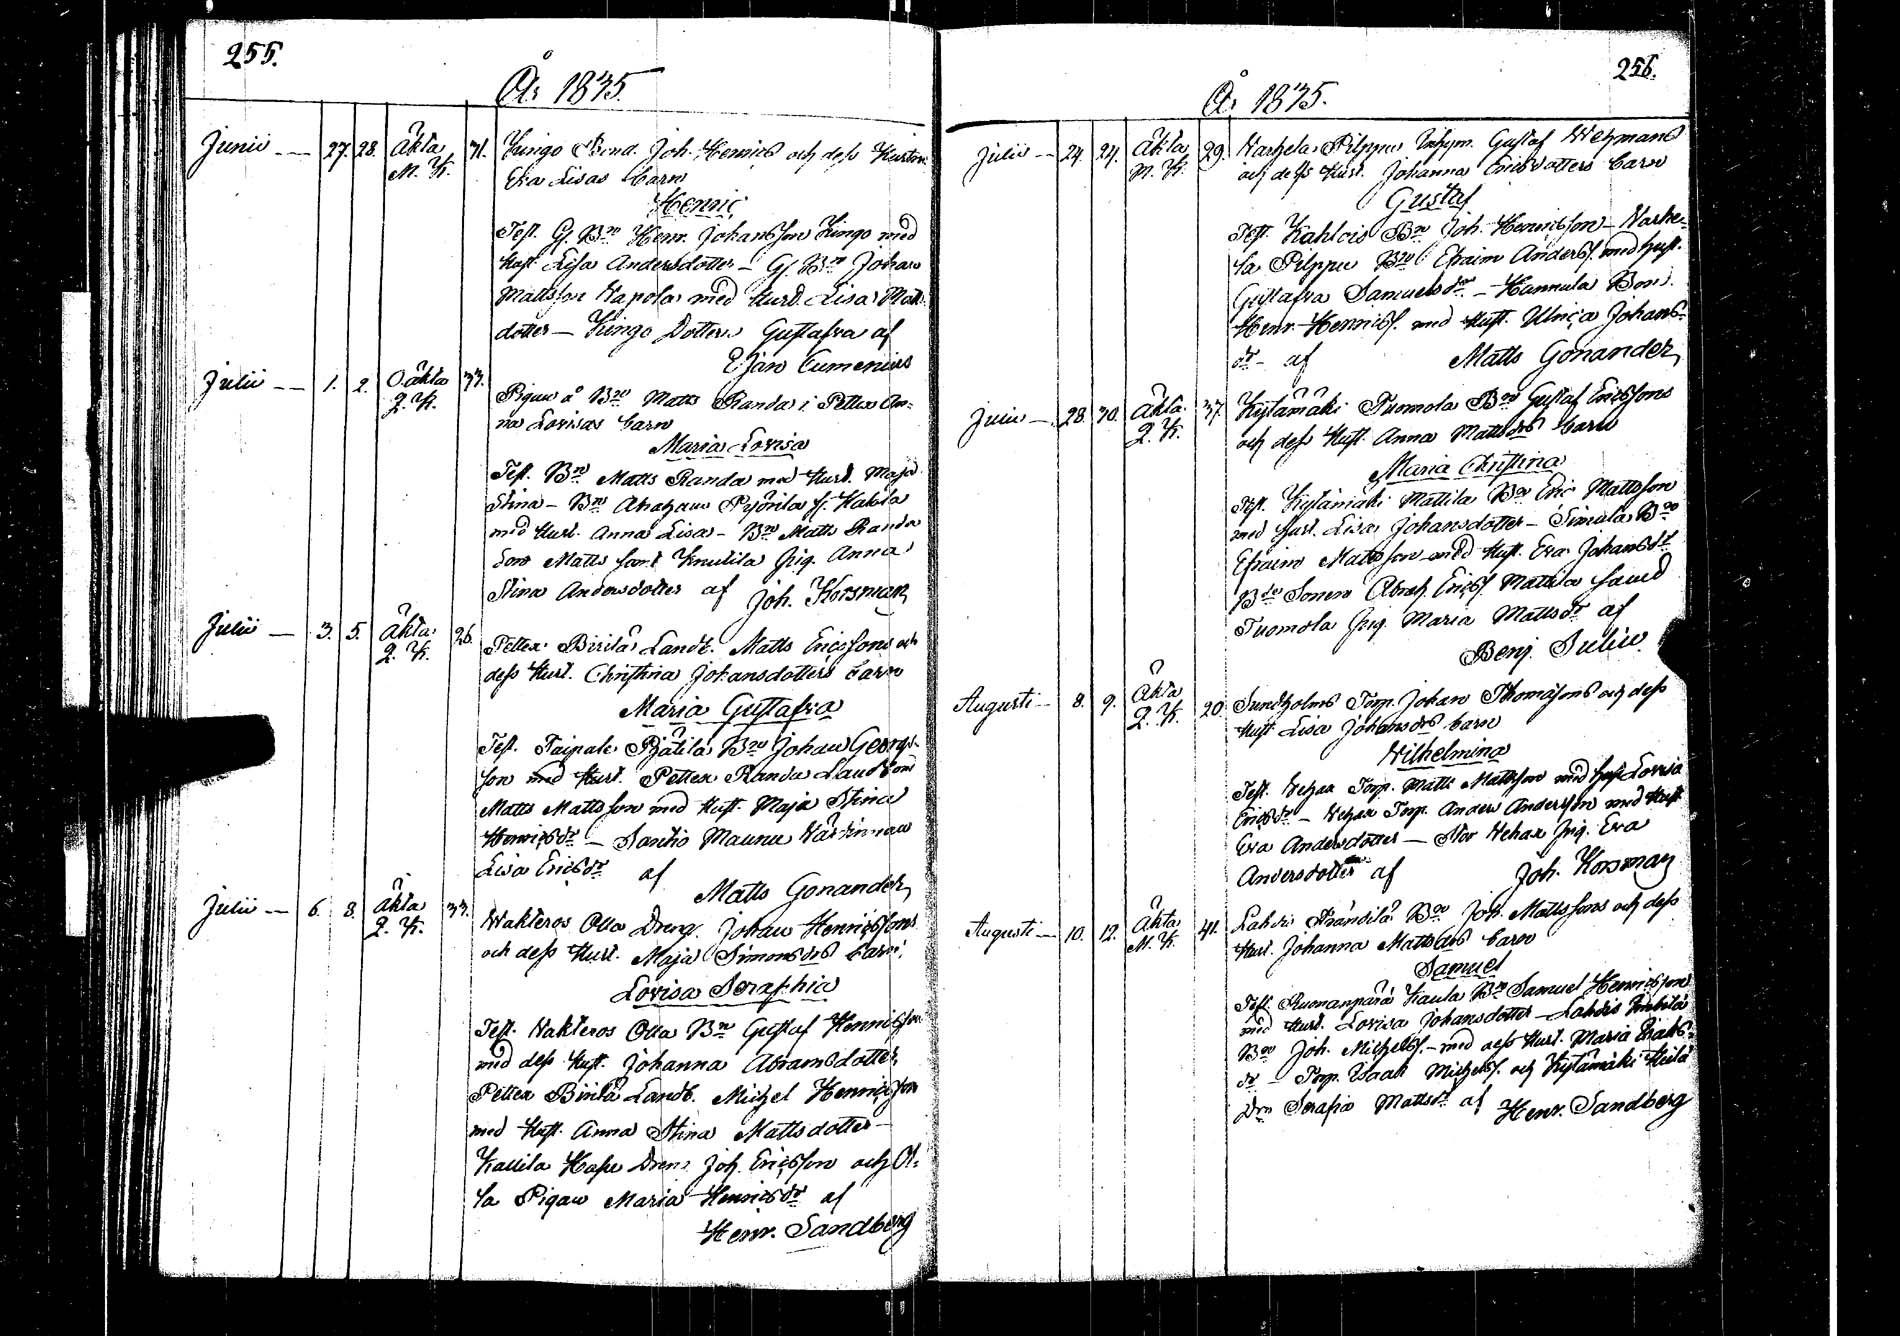 255.
År 1835.
Junii — 27. 28. Äkta M. K. 31. Kungo Bond. Joh. Henrics och dess Hustru
Eva Lisas barn
Henric
Test. G. Bn Henr. Johansson Kungo med
Hust. Lisa Andersdotter — G. Bn Johan
Mattsson Napola med Hust. Lisa Matts
dotter — Kungo Dotter Gustafva af
Ejan Cumenius
Julii — 1. 2. Oäkta Q. K. 33. Pigan å Bn Matts Randa i Pettex An-
na Lovisas barn
Maria Lovisa
Test. Bn Matts Randa med Hust. Maja
Stina — Bn Abraham Pyörilä f. Hakola
med Hust. Anna Lisa — Bn Matts Randa
Son Matts samt Knutila Pig. Anna
Stina Andersdotter af Joh. Korsman
Julii — 3. 5. Äkta Q. K. 26. Pettex Birilä Landb. Matts Ericssons och
dess Hust. Christina Johansdotters barn
Maria Gustafva
Test. Taipale Bn Johan Georgs-
son med Hust. Pettex Randa Landb
Matts Mattsson med Hust. Maja Stina
Henricsdr — Santio Maunu
Lisa Ericsdr af
Matts Gonander
Julii — 6. 8. Äkta Q. K. 33. Nakteros Olla Dreng. Johan Henricssons
och dess Hust. Maja Simonsdrs barn
Lovisa Seraphia
Test. Nakteros Olla Bn Gustaf Henricsson
med dess Hust. Johanna Abramsdotter
Pettex Birilä Landb. Michel Henricsson
med Hust. Anna Stina Mattsdotter —
Kallila Dren. Joh. Ericsson och Ol-
la Pigan Maria Henricsdr af
Henr. Sandberg
256.
År 1835.
Julii — 24. 24. Äkta M. K. 29. Narhela Pilppu Inhym. Gustaf Wehmans
och dess Hust. Johanna Ericsdotters barn
Gustaf
Test. Kahlois Bn Joh. Henricsson — Narhe-
la Pilppu Bn Efraim Anderss. med Hust.
Gustafva Samuelsdr — Hannula Bon.
Henr. Henricss. med Hust. Ulrica Johans-
dr — af Matts Gonander
Julii — 28. 30. Äkta Q. K. 37. Kylämäki Tuomola Bn Gustaf Ericssons
och dess Hust. Anna Mattsdrs barn
Maria Christina
Test. Kylämäki Mattila Bn Eric Mattsson
med Hust. Lisa Johansdotter — Simula Bn
Efraim Mattsson med Hust. Eva Johansdr
Bde Sonen Abrah. Ericss. Mattila samt
Tuomola Pig. Maria Mattsdr af
Benj. Sulin
Augusti — 8. 9. Äkta Q. K. 20. Sundholms Torp. Johan Thomassons och dess
Hust. Lisa Johansdrs barn
Wilhelmina
Test. Torp. Matts Mattsson med Hust. Lovisa
Ericsdr — Torp. Anders Andersson med Hust.
Eva Andersdotter — Stor Pig. Eva
Andersdotter af Joh. Korsman
Augusti — 10. 12. Äkta M. K. 41. Lahdis Frändilä Bn Joh. Mattssons och dess
Hust. Johanna Mattsdrs barn
Samuel
Test. Ruonanpärä Kaula Bn Samuel Henricsson
med Hust. Lovisa Johansdotter — Lahdis
Bn Joh. Michelss. — med dess Hust. Maria Isaks-
dr — Torp. Isaak Michelss. och Kylämäki Heilä
Drn Serafia Mattsdr af Henr. Sandberg